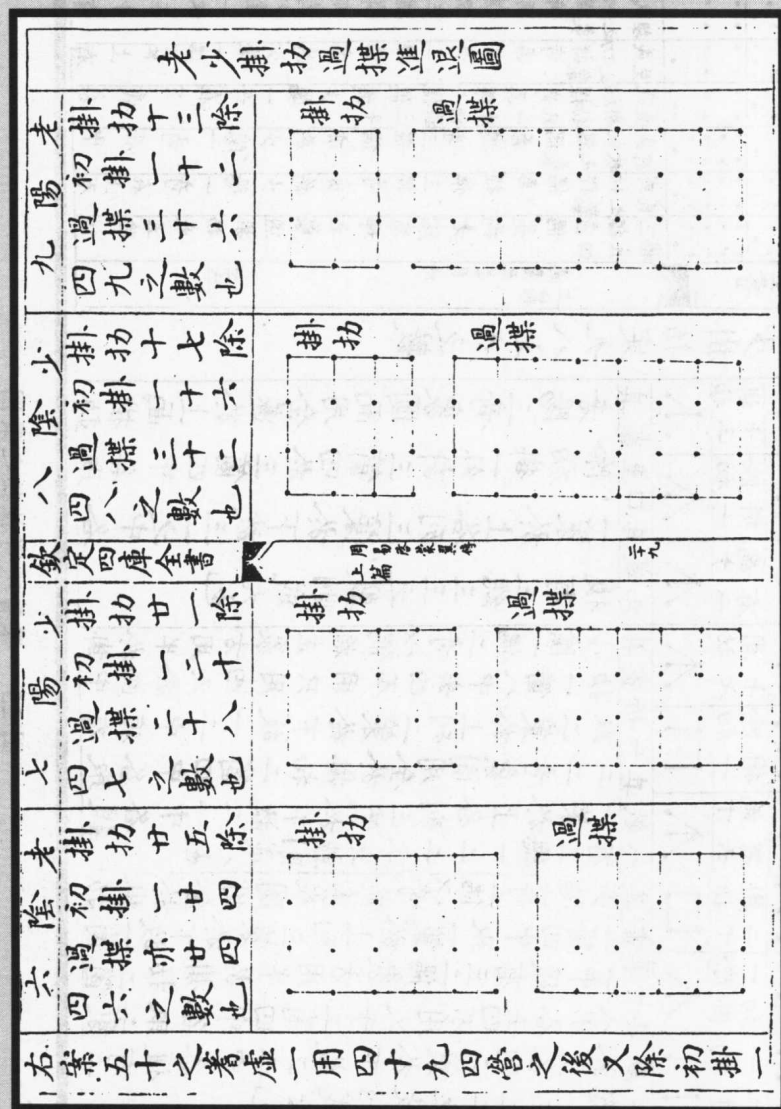 老少掛扐過揲進退圖
老陽九
掛扐十三除
初掛一十二
過揲三十六
四九之數也
掛扐
過揲
少陰八
掛扐十七除
初掛一十六
過揲三十二
四八之數也
掛扐
過揲
欽定四庫全書
周易啓蒙翼傳
上篇
二十九
少陽七
掛扐廿一除
初掛一二十
過揲二十八
四七之數也
掛扐
過揲
老陰六
掛扐廿五除
初掛一廿四
過揲亦廿四
四六之數也
掛扐
過揲
右案五十之蓍虛一用四十九四營之後又除初掛一